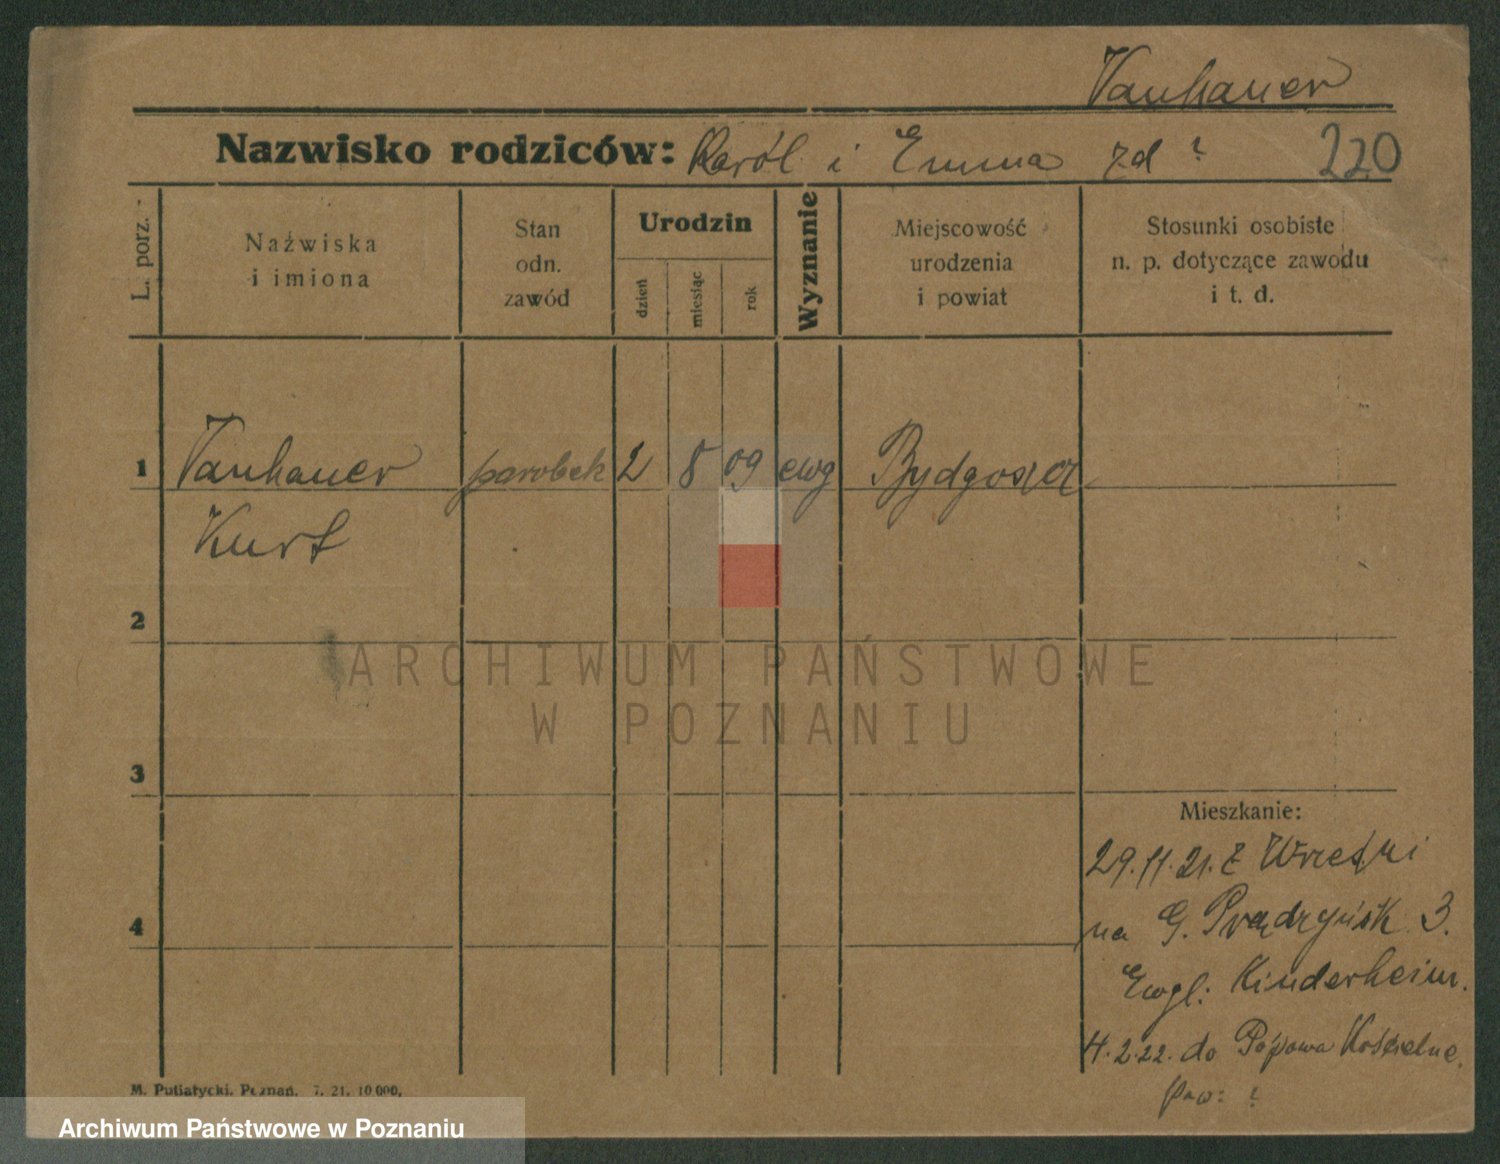 Vanhauer
Nazwisko rodziców: Karól i Emma zd ? 220
L. porz.
Nazwiska
i imiona
Stan
odn.
zawód
Urodzin
dzień
miesiąc
rok
Wyznanie
Miejscowość
urodzenia
i powiat
Stosunki osobiste
n. p. dotyczące zawodu
i t. d.
1 Vanhauer parobek 2 8 09 ewg Bydgoszcz
Kurt
2
ARCHIWUM PAŃSTWOWE
W POZNANIU
3
Mieszkanie:
29.11.21. z Wrześni
4
na G. Prądzyńsk 3.
Ewgl. Kinderheim.
4.2.22. do Popowa Kościelne.
Pow: ?
M. Putiatycki, Poznań. 7. 21. 10 000.
Archiwum Państwowe w Poznaniu